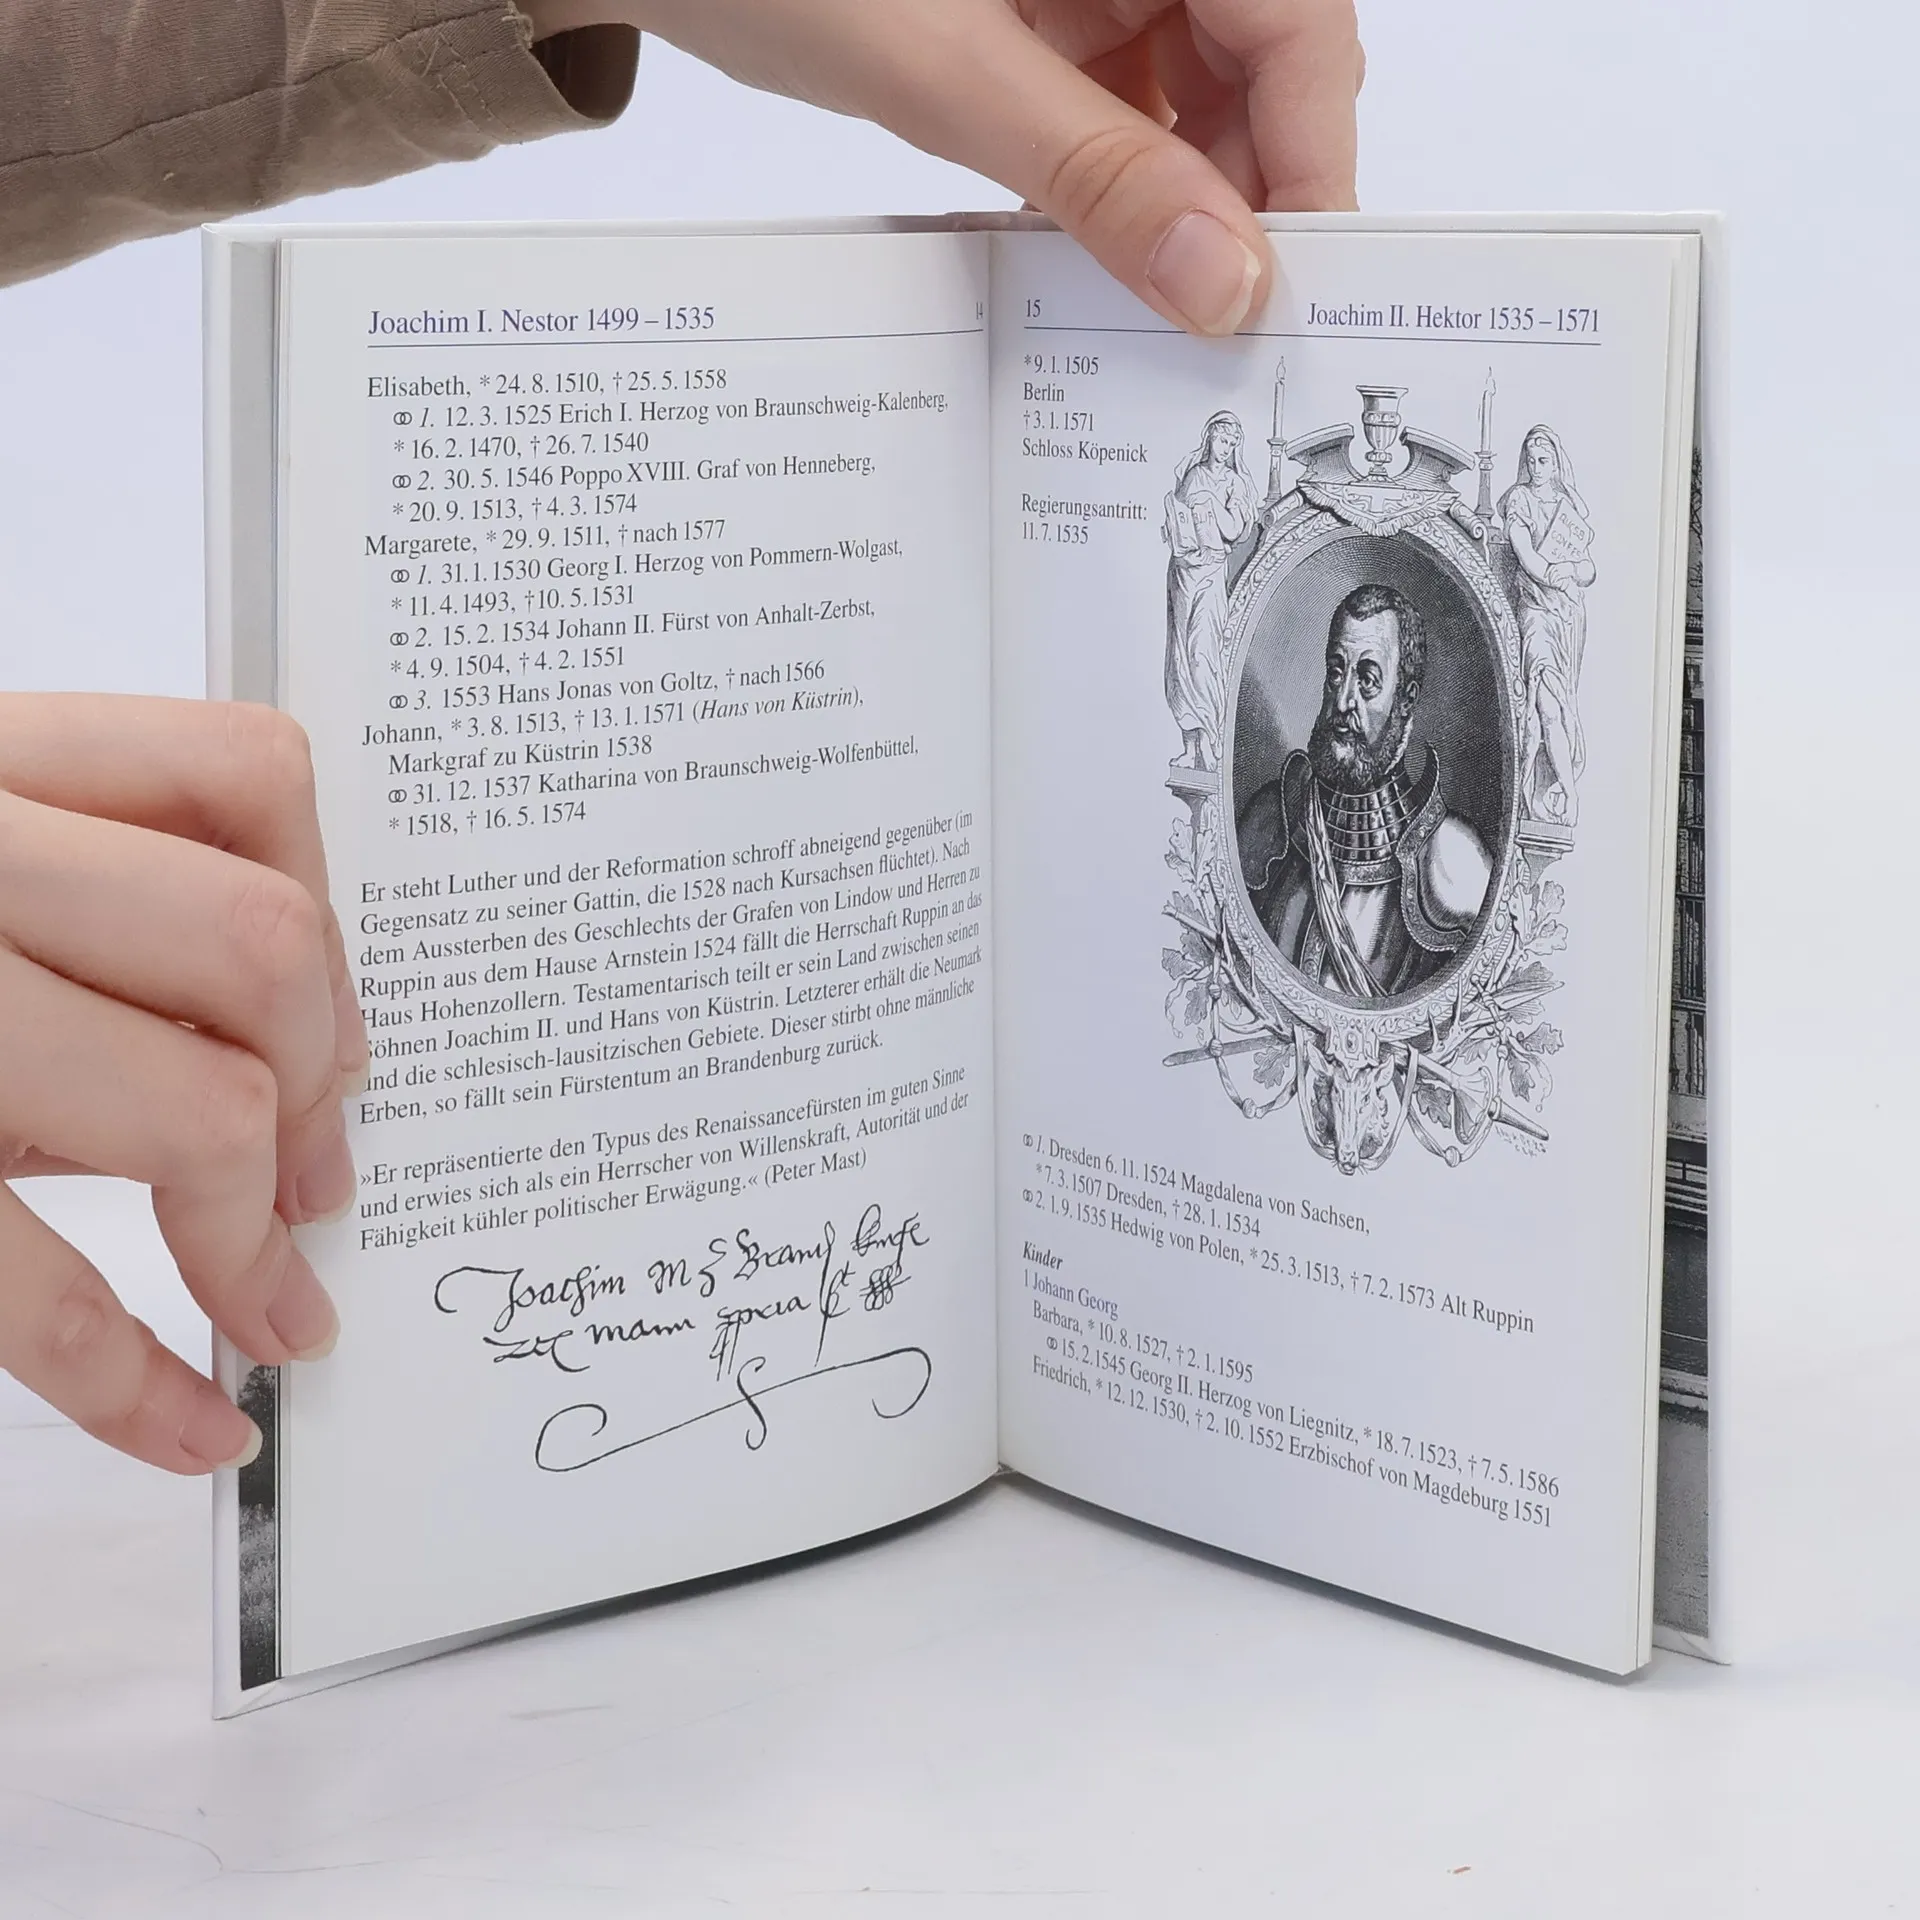 Joachim I. Nestor 1499 – 1535
14
Elisabeth, * 24. 8. 1510, † 25. 5. 1558
⚭ 1. 12. 3. 1525 Erich I. Herzog von Braunschweig-Kalenberg,
* 16. 2. 1470, † 26. 7. 1540
⚭ 2. 30. 5. 1546 Poppo XVIII. Graf von Henneberg,
* 20. 9. 1513, † 4. 3. 1574
Margarete, * 29. 9. 1511, † nach 1577
⚭ 1. 31. 1. 1530 Georg I. Herzog von Pommern-Wolgast,
* 11. 4. 1493, † 10. 5. 1531
⚭ 2. 15. 2. 1534 Johann II. Fürst von Anhalt-Zerbst,
* 4. 9. 1504, † 4. 2. 1551
⚭ 3. 1553 Hans Jonas von Goltz, † nach 1566
Johann, * 3. 8. 1513, † 13. 1. 1571 (Hans von Küstrin),
Markgraf zu Küstrin 1538
⚭ 31. 12. 1537 Katharina von Braunschweig-Wolfenbüttel,
* 1518, † 16. 5. 1574
Er steht Luther und der Reformation schroff abneigend gegenüber (im
Gegensatz zu seiner Gattin, die 1528 nach Kursachsen flüchtet). Nach
dem Aussterben des Geschlechts der Grafen von Lindow und Herren zu
Ruppin aus dem Hause Arnstein 1524 fällt die Herrschaft Ruppin an das
Haus Hohenzollern. Testamentarisch teilt er sein Land zwischen seinen
Söhnen Joachim II. und Hans von Küstrin. Letzterer erhält die Neumark
und die schlesisch-lausitzischen Gebiete. Dieser stirbt ohne männliche
Erben, so fällt sein Fürstentum an Brandenburg zurück.
»Er repräsentierte den Typus des Renaissancefürsten im guten Sinne
und erwies sich als ein Herrscher von Willenskraft, Autorität und der
Fähigkeit kühler politischer Erwägung.« (Peter Mast)
Joachim
mann
15
Joachim II. Hektor 1535 – 1571
* 9. 1. 1505
Berlin
† 3. 1. 1571
Schloss Köpenick
Regierungsantritt:
11. 7. 1535
BIBLIA
⚭ 1. Dresden 6. 11. 1524 Magdalena von Sachsen,
* 7. 3. 1507 Dresden, † 28. 1. 1534
⚭ 2. 1. 9. 1535 Hedwig von Polen, * 25. 3. 1513, † 7. 2. 1573 Alt Ruppin
Kinder
1 Johann Georg
Barbara, * 10. 8. 1527, † 2. 1. 1595
⚭ 15. 2. 1545 Georg II. Herzog von Liegnitz, * 18. 7. 1523, † 7. 5. 1586
Friedrich, * 12. 12. 1530, † 2. 10. 1552 Erzbischof von Magdeburg 1551